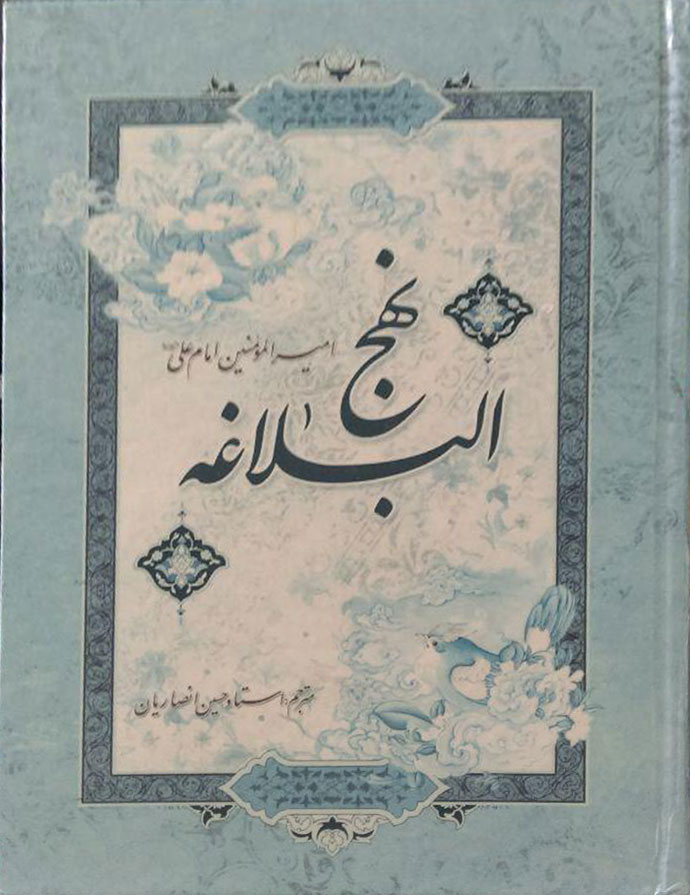 نهج
امیرالمؤمنین امام علی
البلاغه
مترجم: استاد حسین انصاریان